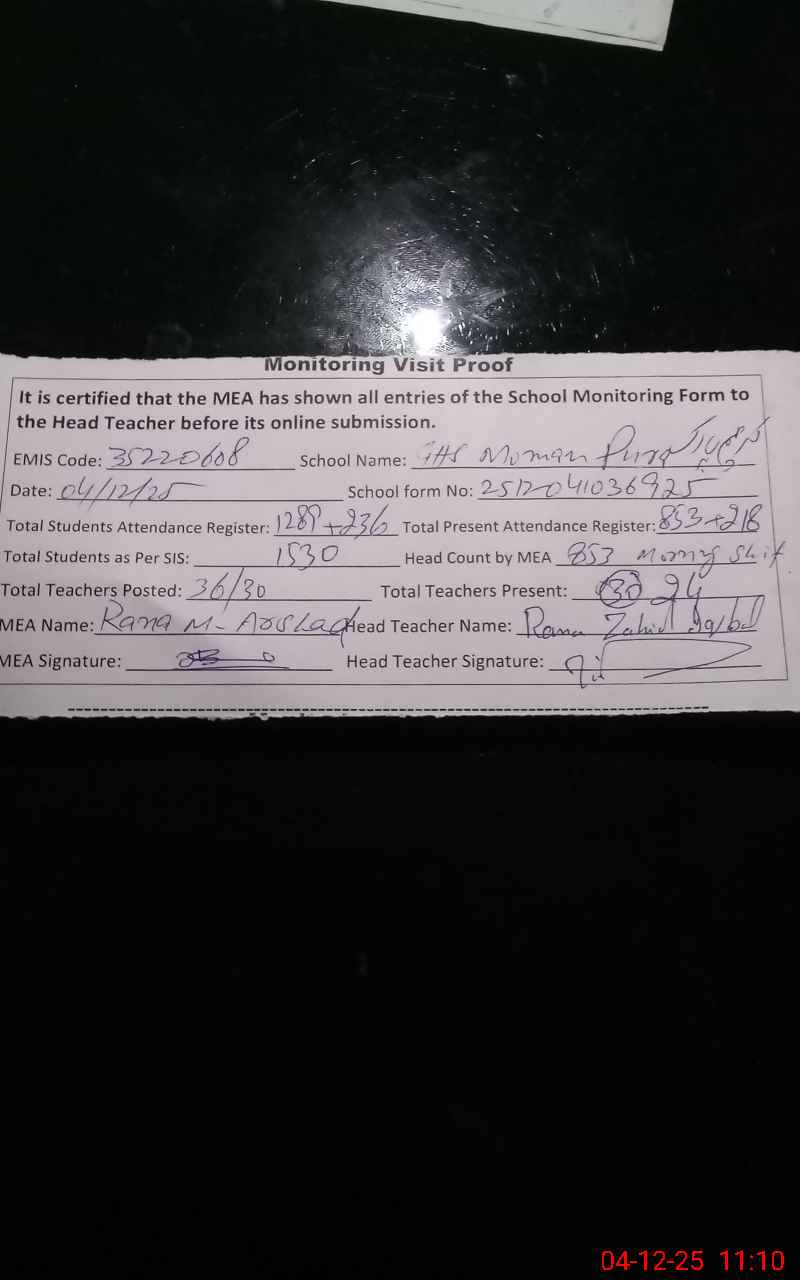 Monitoring Visit Proof
It is certified that the MEA has shown all entries of the School Monitoring Form to
the Head Teacher before its online submission.
EMIS Code: 35220608 School Name: GHS Moman Pura
Date: 04/12/25 School form No: 2512041036925
Total Students Attendance Register: 1289+236 Total Present Attendance Register: 853+218
Total Students as Per SIS: 1530 Head Count by MEA 853 Morng Shif
Total Teachers Posted: 36/30 Total Teachers Present: 30 24
MEA Name: Rana M- Arshad Head Teacher Name: Rana Zahid Iqbal
MEA Signature: Head Teacher Signature:
04-12-25 11:10